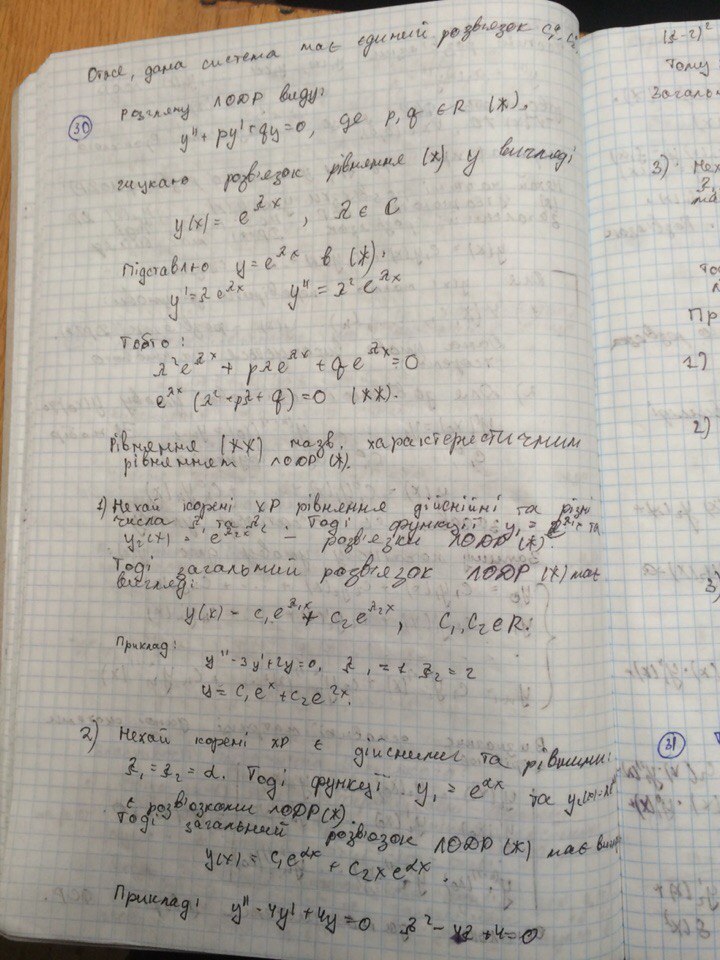 Отже, дана система має єдиний розв'язок C₁⁰, C₂⁰
30
Розгляну ЛОДР виду:
y'' + py' + qy = 0, де p, q ∈ R (*).
Шукаю розв'язок рівняння (*) у вигляді
y(x) = e^{λx}, λ ∈ C
Підставлю y = e^{λx} в (*).
y' = λe^{λx} y'' = λ²e^{λx}
Тобто:
λ²e^{λx} + pλe^{λx} + qe^{λx} = 0
e^{λx}(λ² + pλ + q) = 0 (**).
Рівняння (**) назв. характеристичним
рівнянням ЛОДР (*).
1) Нехай корені ХР рівняння дійснійні та різні
числа λ₁ та λ₂. Тоді функції y₁ = e^{λ₁x} та
y₂(x) = e^{λ₂x} – розв'язки ЛОДР (*).
Тоді загальний розв'язок ЛОДР (*) має
вигляді
y(x) = C₁e^{λ₁x} + C₂e^{λ₂x}, C₁, C₂ ∈ R.
Приклад:
y'' - 3y' + 2y = 0, λ₁ = 1 λ₂ = 2
y = C₁e^x + C₂e^{2x}.
2) Нехай корені ХР є дійсними та рівними:
λ₁ = λ₂ = α. Тоді функції y₁ = e^{αx} та y₂(x) =
є розв'язками ЛОДР (*).
Тоді загальний розв'язок ЛОДР (*) має
y(x) = C₁e^{αx} + C₂xe^{αx}.
Приклад: y'' - 4y' + 4y = 0 λ² - 4λ + 4 = 0
Тому
Загаль
3) Нех
То
Пр
1)
2)
3)
31